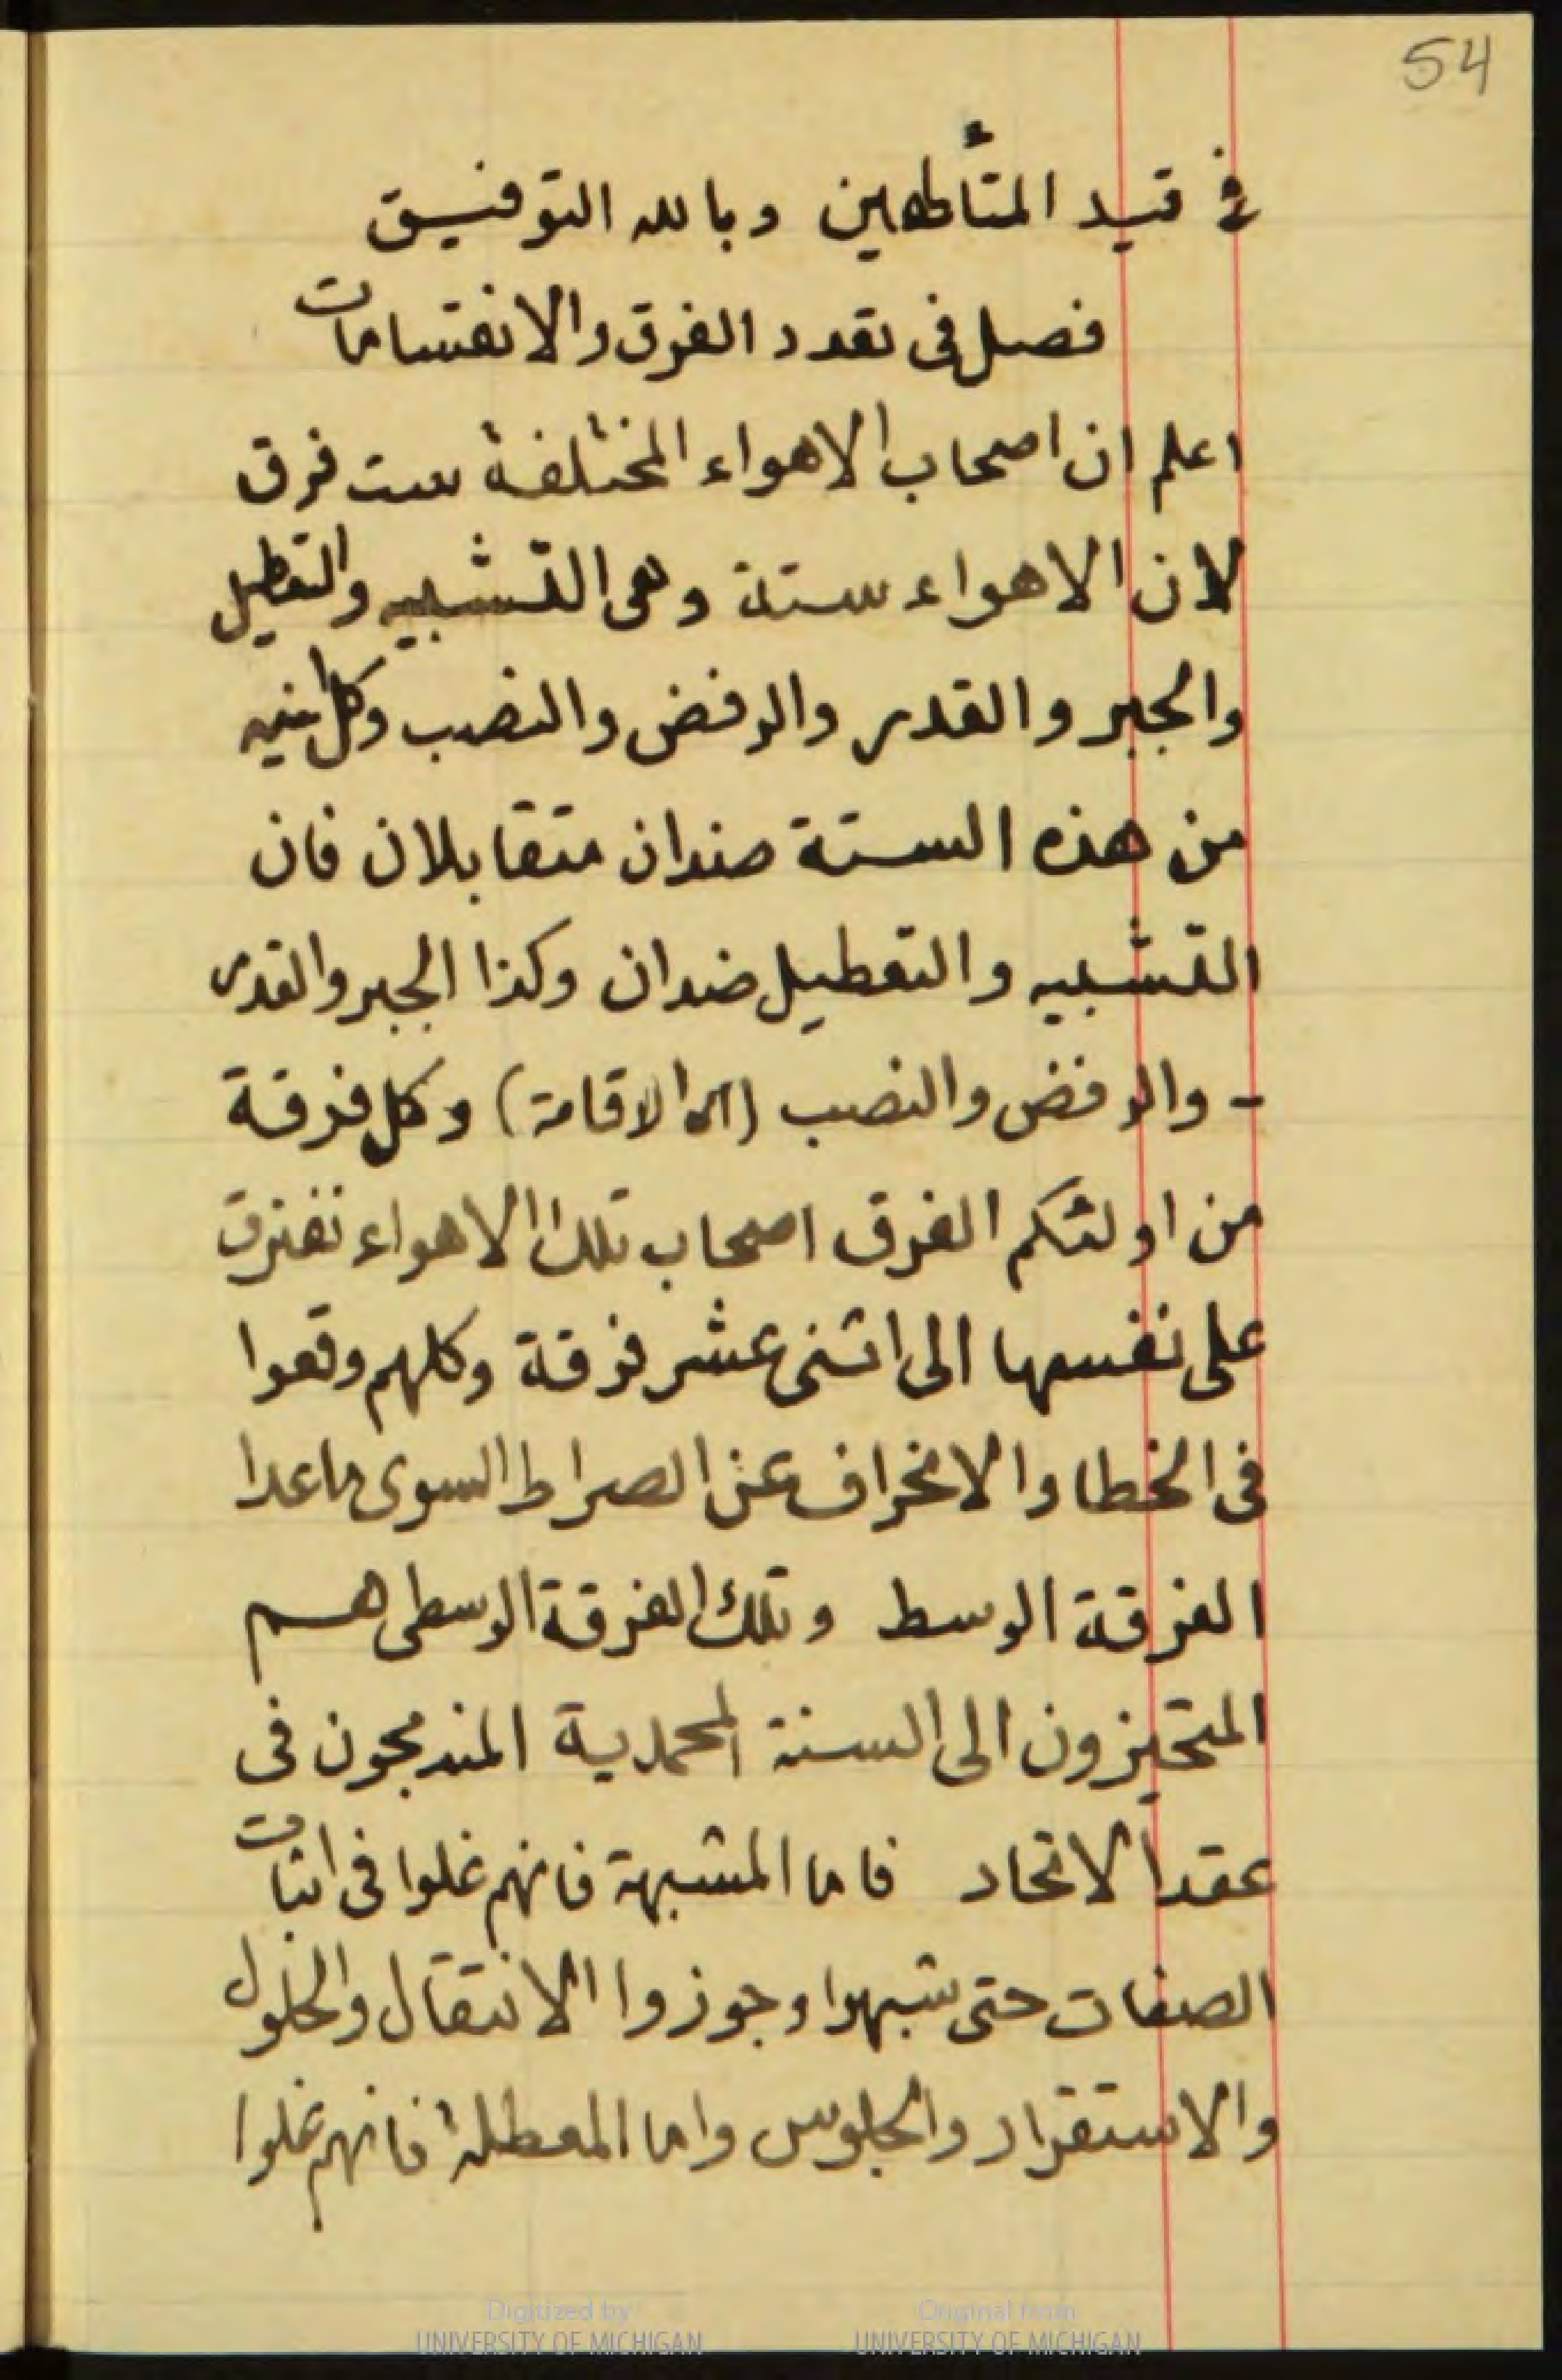 54
في قيد المتألهين وبالله التوفيق
فصل فى تعدد الفرق والانقسامات
اعلم ان اصحاب الاهواء المختلفة ست فرق
لان الاهواء ستة وهى التشبيه والتعطيل
والجبر والقدر والرفض والنصب وكل
من هذه الستة ضدان متقابلان فان
التشبيه والتعطيل ضدان وكذا الجبر والقدر
- والرفض والنصب (الاقامة) وكل فرقة
من اولئكم الفرق اصحاب تلك الاهواء تفترق
على نفسها الى اثنى عشر فرقة وكلهم وقعوا
فى الخطا والانحراف عن الصراط السوى ماعدا
الفرقة الوسط وتلك الفرقة الوسطى هم
المتحيزون الى السنة المحمدية المندمجون فى
عقد الاتحاد فاما المشبهة فانهم غلوا فى اثبات
الصفات حتى شبهوا وجوزوا الانتقال والحلول
والاستقرار والجلوس واما المعطلة فانهم غلوا
Digitized by
UNIVERSITY OF MICHIGAN
Original from
UNIVERSITY OF MICHIGAN